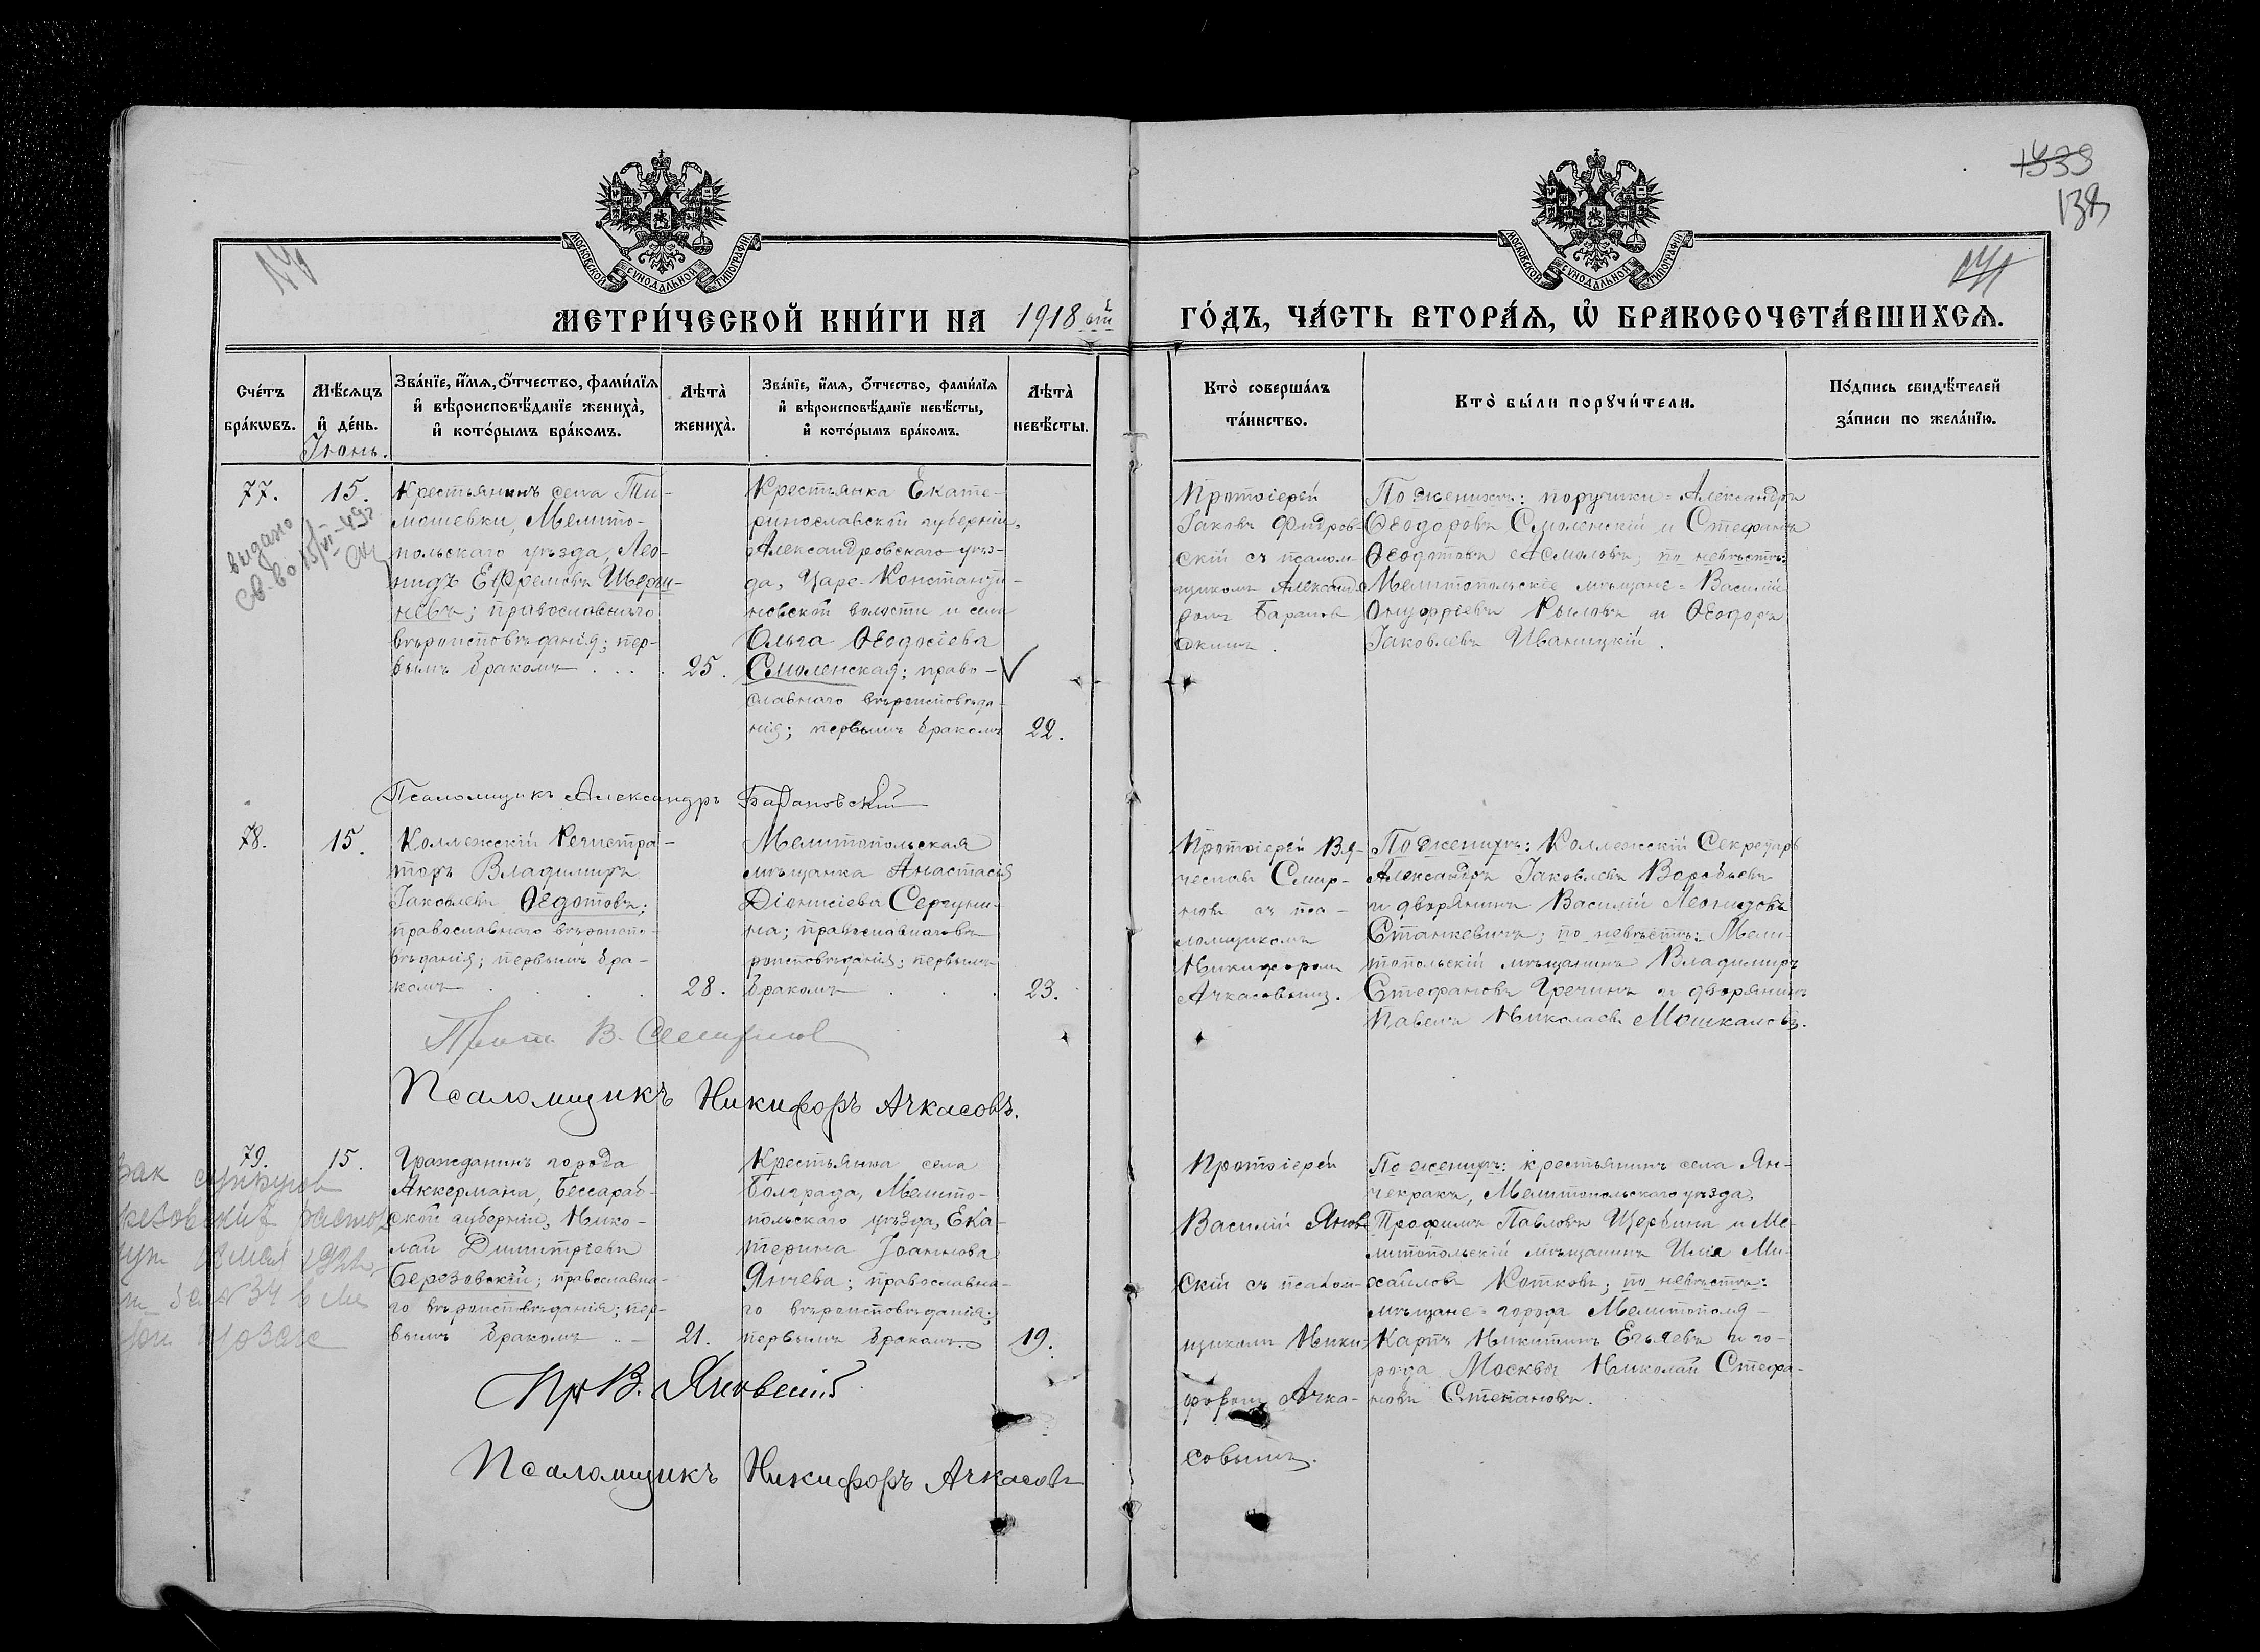 1339
138
141
141
МОСКОВСКОЙ СѴНОДАЛЬНОЙ ТИПОГРАФІИ
МОСКОВСКОЙ СѴНОДАЛЬНОЙ ТИПОГРАФІИ
МЕТРИ́ЧЕСКОЙ КНИ́ГИ НА 1918 ой ГО́ДЪ, ЧА́СТЬ ВТОРА́Ѧ, Ѡ҆ БРАКОСОЧЕТА́ВШИХСѦ.
Сче́тъ бра́кѡвъ.
Мѣ́сѧцъ и҆ де́нь.
Іюнь.
Зва́нїе, и҆́мѧ, ѻ҆́тчество, фами́лїѧ
и҆ вѣроисповѣ́данїе жениха̀,
и҆ кото́рымъ бра́комъ.
Лѣта̀ жениха̀.
Зва́нїе, и҆́мѧ, ѻ҆́тчество, фами́лїѧ
и҆ вѣроисповѣ́данїе невѣ́сты,
и҆ кото́рымъ бра́комъ.
Лѣта̀ невѣ́сты.
Кто̀ соверша́лъ
та́инство.
Кто̀ бы́ли порꙋчи́тели.
По́дпись свидѣ́телей
за́писи по жела́нїю.
77.
15.
выдано
св-во 15/VI-49г
Крестьянинъ села Ти-
мошевки, Мелито-
польскаго уѣзда, Лео-
нидъ Ефремовъ Шерши-
невъ; православнаго
вѣроисповѣданія; пер-
вымъ бракомъ . . .
25.
Крестьянка Екате-
ринославской губерніи,
Александровскаго уѣз-
да, Царе-Константи-
новской волости и села
Ольга Ѳеодосіева
Смоленская; право-
славнаго вѣроисповѣда-
нія; первымъ бракомъ
22.
Протоіерей
Іаковъ
скій съ псалом-
щикомъ Александ-
ромъ Баранов-
скимъ.
По женихѣ: поручики= Александръ
Ѳеодоровъ Смоленскій и Стефанъ
Ѳеодотовъ по невѣстѣ:
Мелитопольскіе мѣщане= Василій
Онуфріевъ Рыловъ и Ѳеодоръ
Іаковлевъ Иваницкій.
Псаломщикъ Александръ Барановскій
78.
15.
Коллежскій Регистра-
торъ Владимиръ
Іаковлевъ Ѳедотовъ;
православнаго вѣроиспо-
вѣданія; первымъ бра-
комъ . . .
28.
Мелитопольская
мѣщанка Анастасія
Діонисіева Середни-
на; православнаго вѣ-
роисповѣданія; первымъ
бракомъ . . .
23.
Протоіерей Вя-
чеславъ Смир-
новъ съ пса-
ломщикомъ
Никифоромъ
Ачкасовымъ.
По женихѣ: Коллежскій Секретарь
Александръ Іаковлевъ Воробьевъ
и дворянинъ Василій Леонидовъ
Станкевичъ; по невѣстѣ: Мели-
топольскій мѣщанинъ Владимиръ
Стефановъ Гречинъ и дворянинъ
Павелъ Николаевъ Мошкаловъ.
Прот. В. Смирнов
Псаломщикъ Никифоръ Ачкасовъ.
79.
15.
брак супругов
растор
мая 1922
за № 34
Гражданинъ города
Аккермана, Бессараб-
ской губерніи, Нико-
лай Димитріевъ
Березовскій; православна-
го вѣроисповѣданія; пер-
вымъ бракомъ
21.
Крестьянка села
Болграда, Мелито-
польскаго уѣзда, Ека-
терина Іоаннова
Янчева; православна-
го вѣроисповѣданія;
первымъ бракомъ
19.
Протоіерей
Василій Янов-
скій съ псалом-
щикомъ Ники-
форомъ Ачка-
совымъ.
По женихѣ: крестьянинъ села Ян-
чекракъ, Мелитопольскаго уѣзда,
Трофимъ Павловъ Щербина и Ме-
литопольскій мѣщанинъ Илія Ми-
хайловъ Котковъ; по невѣстѣ:
мѣщане= города Мелитополя-
Карпъ Никитинъ и го-
рода Москвы Николай Стефа-
новъ Степановъ.
Пр В. Яновскій
Псаломщикъ Никифоръ Ачкасовъ